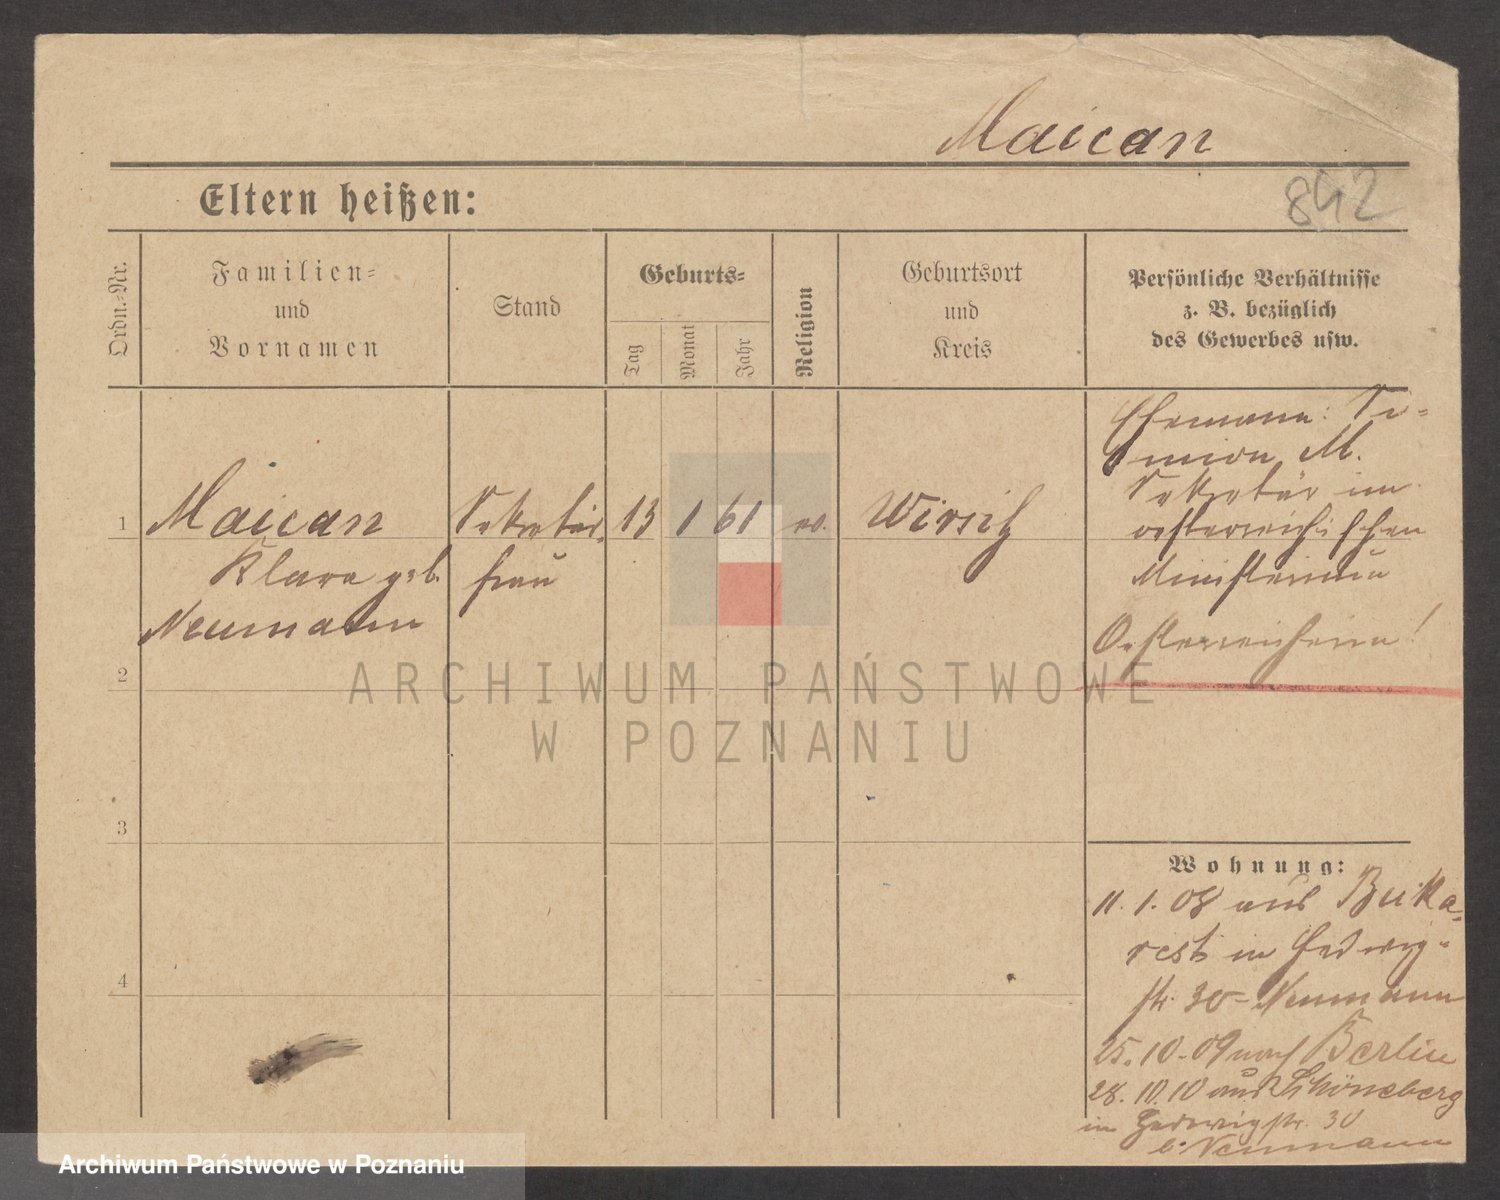 Maican
842
Eltern heißen:
Ordn.-Nr.
Familien-
und
Vornamen
Stand
Geburts-
Tag
Monat
Jahr
Religion
Geburtsort
und
Kreis
Persönliche Verhältnisse
z. B. bezüglich
des Gewerbes usw.
1
Maican
Klara geb.
Neumann
Sekretär,
frau
13 1 61 ev.
Wirsitz
Ehemann: Si-
mion M.
Sekretär im
oesterreichischen
Ministerium
Oesterreicherin!
2
3
4
Wohnung:
11. 1. 08 aus Buka-
rest in Hedwig-
str. 30 - Neumann
25. 10. 09 nach Berlin
28. 10. 10 aus Schöneberg
in Hedwigstr. 30
b. Neumann
ARCHIWUM PAŃSTWOWE
W POZNANIU
Archiwum Państwowe w Poznaniu